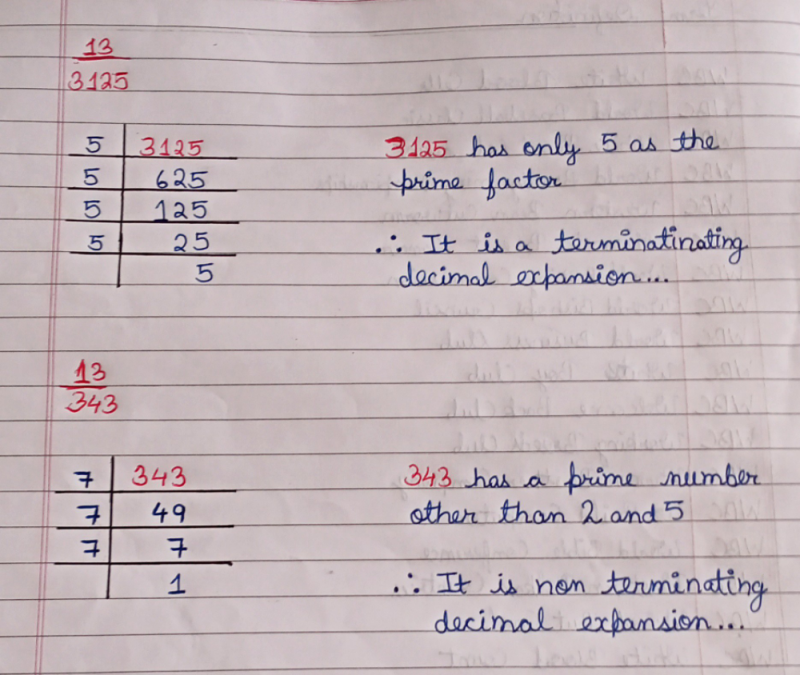 13
3125
5 3125 3125 has only 5 as the
5 625 prime factor
5 125
5 25 ∴ It is a terminatinating
5 decimal expansion...
13
343
7 343 343 has a prime number
7 49 other than 2 and 5
7 7
1 ∴ It is non terminating
decimal expansion...